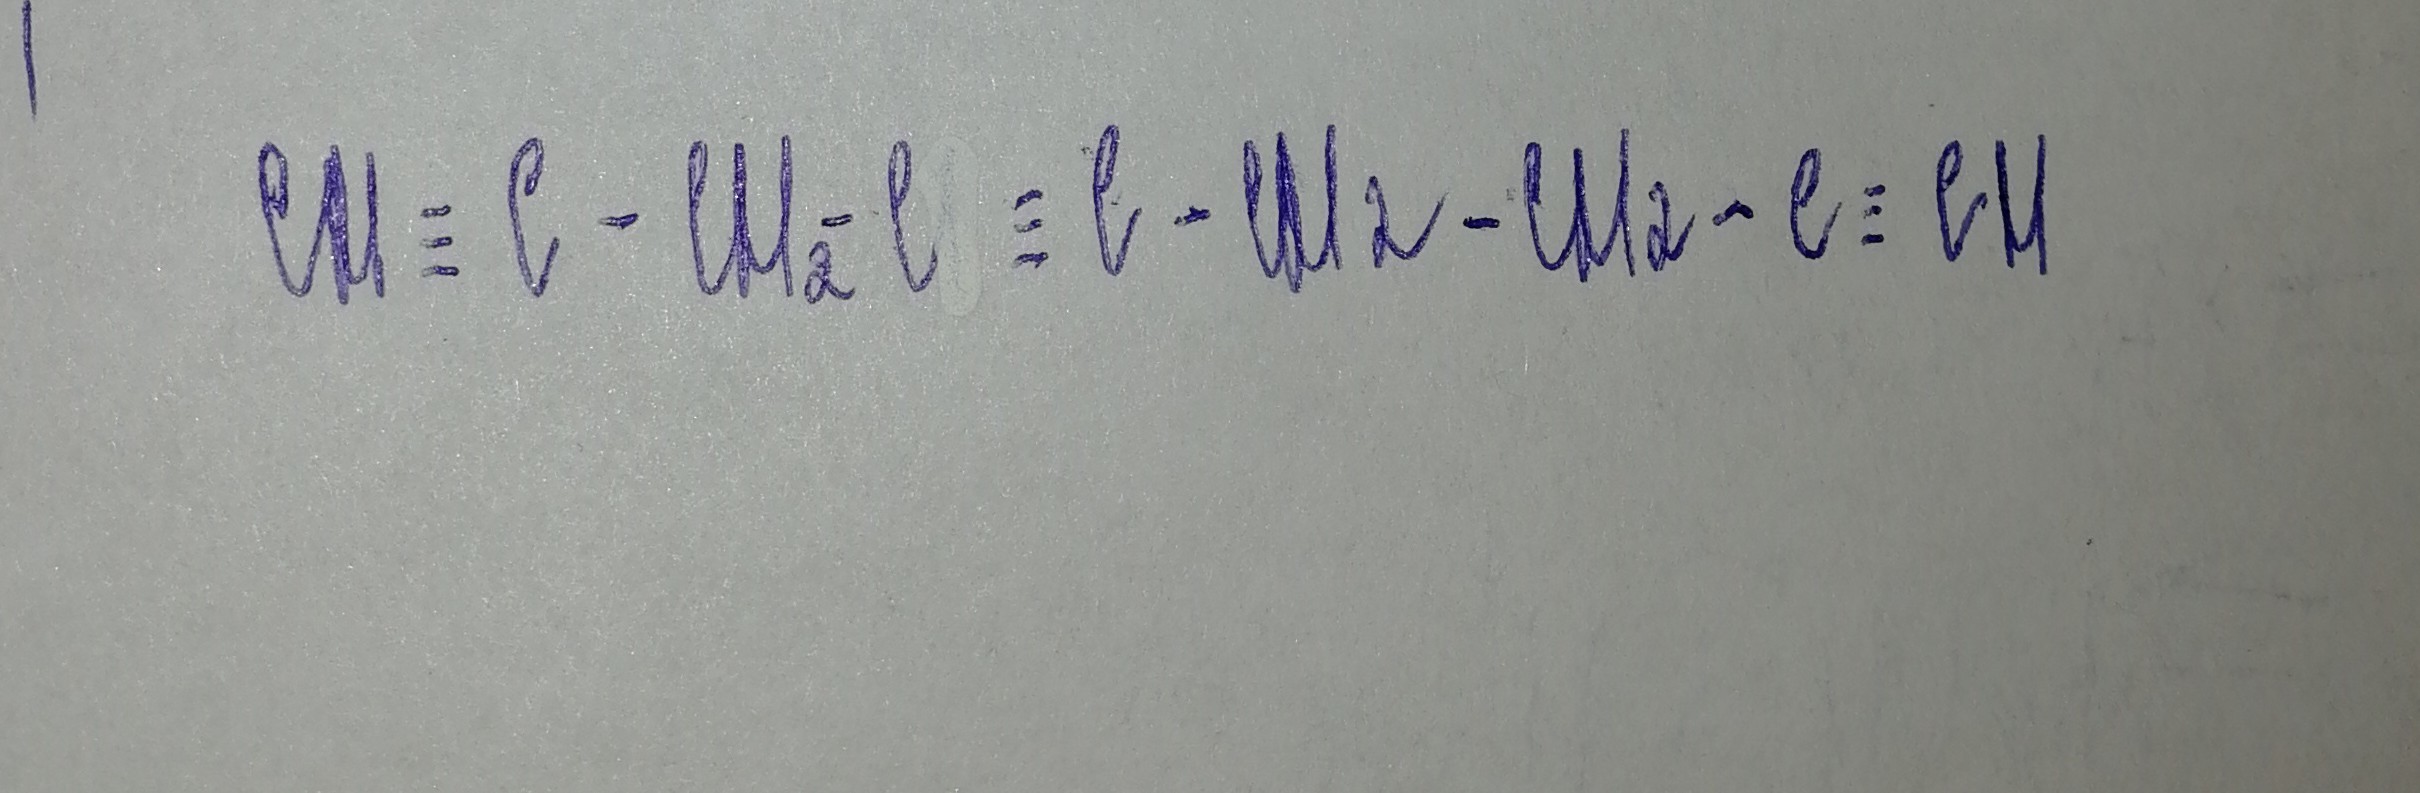 CH ≡ C - CH₂ - C ≡ C - CH₂ - CH₂ - C ≡ CH